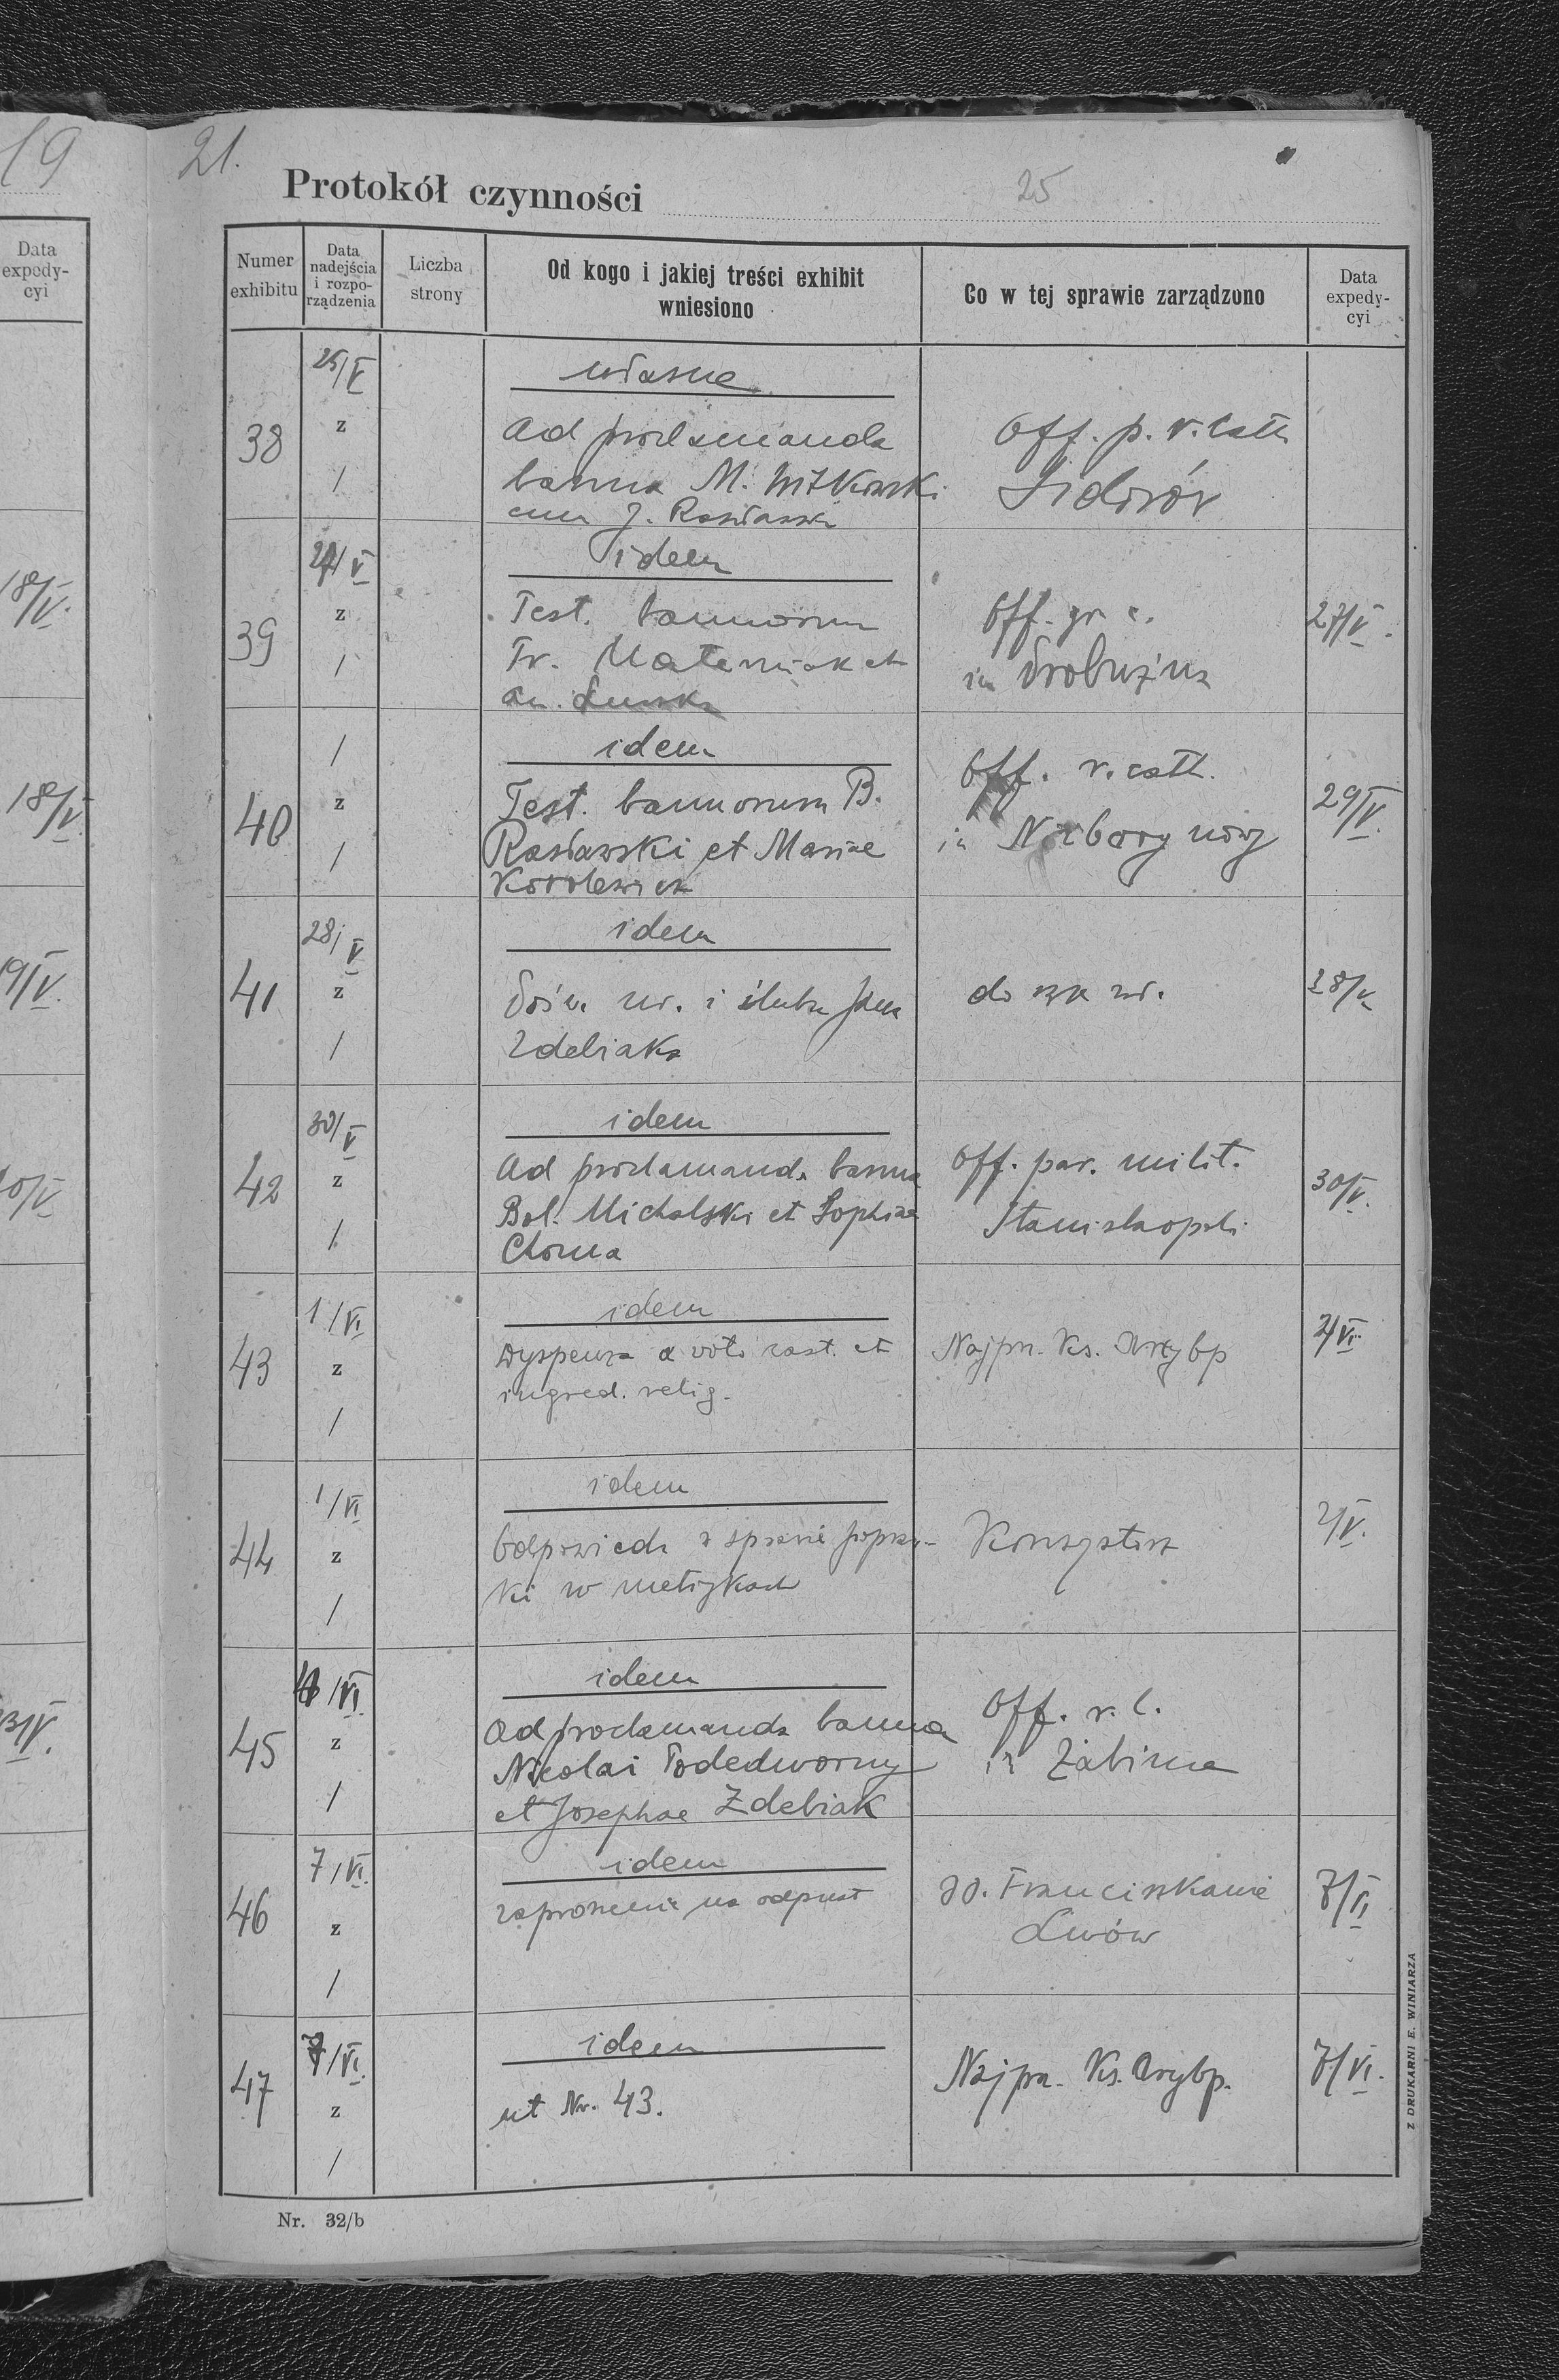 19
Data
expedy-
cyi
18/V.
18/V.
19/V.
21.
Protokół czynności
25
Numer
exhibitu
Data
nadejścia
i rozpo-
rządzenia
Liczba
strony
Od kogo i jakiej treści exhibit
wniesiono
Co w tej sprawie zarządzono
Data
expedy-
cyi
38
25/V
z
/
własne
Ad proclamanda
banna M. Witkowski
cum J. Rosławska
Off. p. r. cath
Sidorów
39
V
z
/
idem
Test. bannorum
Fr. Materniak et
An.
Off. gr c.
in Probużna
27/V.
40
/
z
/
idem
Test. bannorum B.
Rosławski et Mariae
Korolewicz
Off. r. cath.
in Niżborg nowy
29/V.
41
28/V
z
/
idem
Św. ur. i ślubu Jana
Zdebiaka
28/V
42
30/V
z
/
idem
Ad proclamanda banna
Bol. Michalski et Sophiae
Chorna
Off. par. milit.
Stanislaopoli
30/V.
43
1/VI
z
/
idem
Dyspensa a voto cast. et
ingred. relig.
Najprz. Ks. Arcybp
2/VI.
44
1/VI
z
/
idem
Odpowiedź w sprawie popraw-
ki w metrykach
Konsystorz
2/V.
45
/VI.
z
/
idem
Ad proclamanda banna
Nicolai Podedworny
et Josephae Zdebiak
Off. r. l.
in Żabińce
46
7/VI.
z
/
idem
zaproszenie na odpust
OO. Franciszkanie
Lwów
7/VI
47
7/VI.
z
/
idem
ut Nr. 43.
Najprz. Ks. Arcybp.
7/VI.
Nr. 32/b
Z DRUKARNI E. WINIARZA